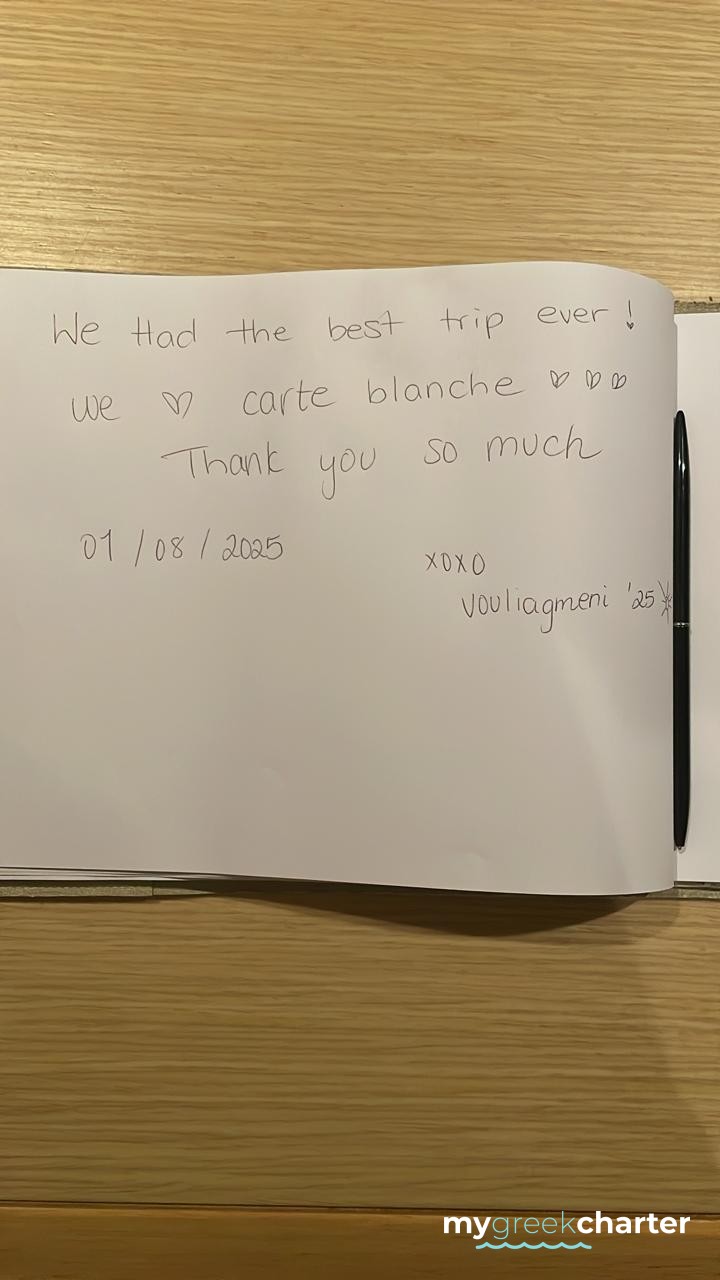 We Had the best trip ever!
we ♡ carte blanche ♡♡♡
Thank you so much
01/08/2025
xoxo
vouliagmeni '25
mygreekcharter